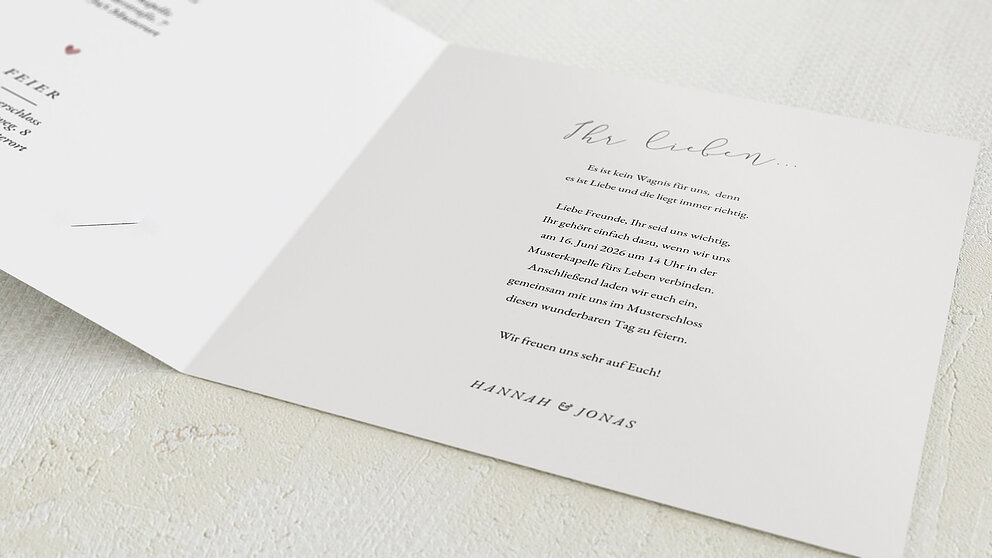 FEIER
weg. 8
Ihr lieben...
Es ist kein Wagnis für uns, denn
es ist Liebe und die liegt immer richtig.
Liebe Freunde, Ihr seid uns wichtig,
Ihr gehört einfach dazu, wenn wir uns
am 16. Juni 2026 um 14 Uhr in der
Musterkapelle fürs Leben verbinden.
Anschließend laden wir euch ein,
gemeinsam mit uns im Musterschloss
diesen wunderbaren Tag zu feiern.
Wir freuen uns sehr auf Euch!
HANNAH & JONAS